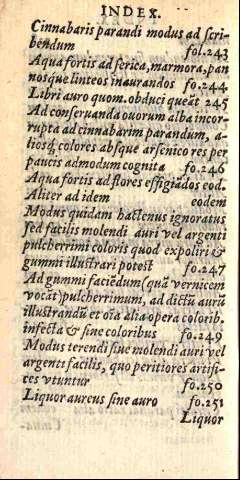 INDEX.
Cinnabaris parandi modus ad scri-
bendum fol.243
Aqua fortis ad serica, marmora, pan
nosque linteos inaurandos fo.244
Libri auro quom. obduci queāt 245
Ad conseruanda ouorum alba incor-
rupta ad cinnabarim parandum, a-
liosq; colores absque arsenico res per
paucis admodum cognita fo.246
Aqua fortis ad flores effigiādos eod.
Aliter ad idem eodem
Modus quidam hactenus ignoratus
sed facilis molendi auri vel argenti
pulcherrimi coloris quod expoliri &
gummi illustrari potest fo.247
Ad gummi faciēdum (quā vernicem
vocāt) pulcherrimum, ad dictū aurū
illustrandū et oīa alia opera colorib.
infecta & sine coloribus fo.249
Modus terendi siue molendi auri vel
argenti facilis, quo peritiores artifi-
ces vtuntur fo.250
Liquor aureus sine auro fo.251
Liquor